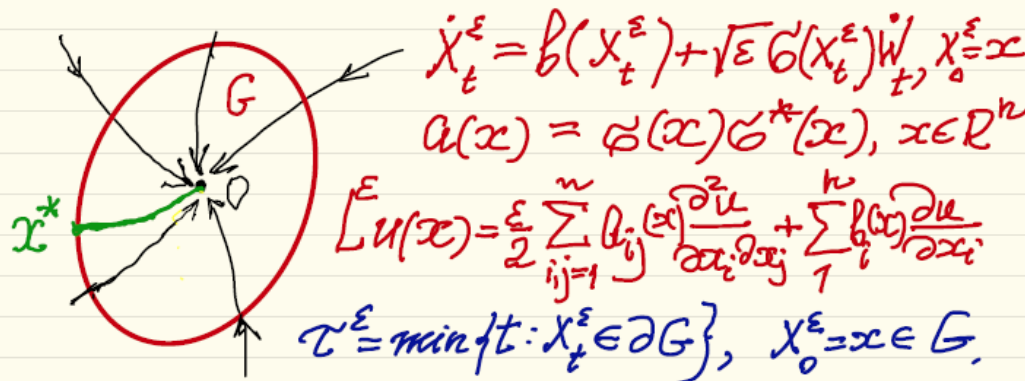 G
O
x*
Ẋ_t^ε = b(X_t^ε) + √ε σ(X_t^ε)Ẇ_t, X_0^ε = x
a(x) = σ(x)σ*(x), x∈R^n
L^ε u(x) = ε/2 ∑_{i,j=1}^n a_{ij}(x) ∂²u/∂x_i∂x_j + ∑_1^n b_i(x) ∂u/∂x_i
τ^ε = min{t: X_t^ε ∈ ∂G}, X_0^ε = x ∈ G.